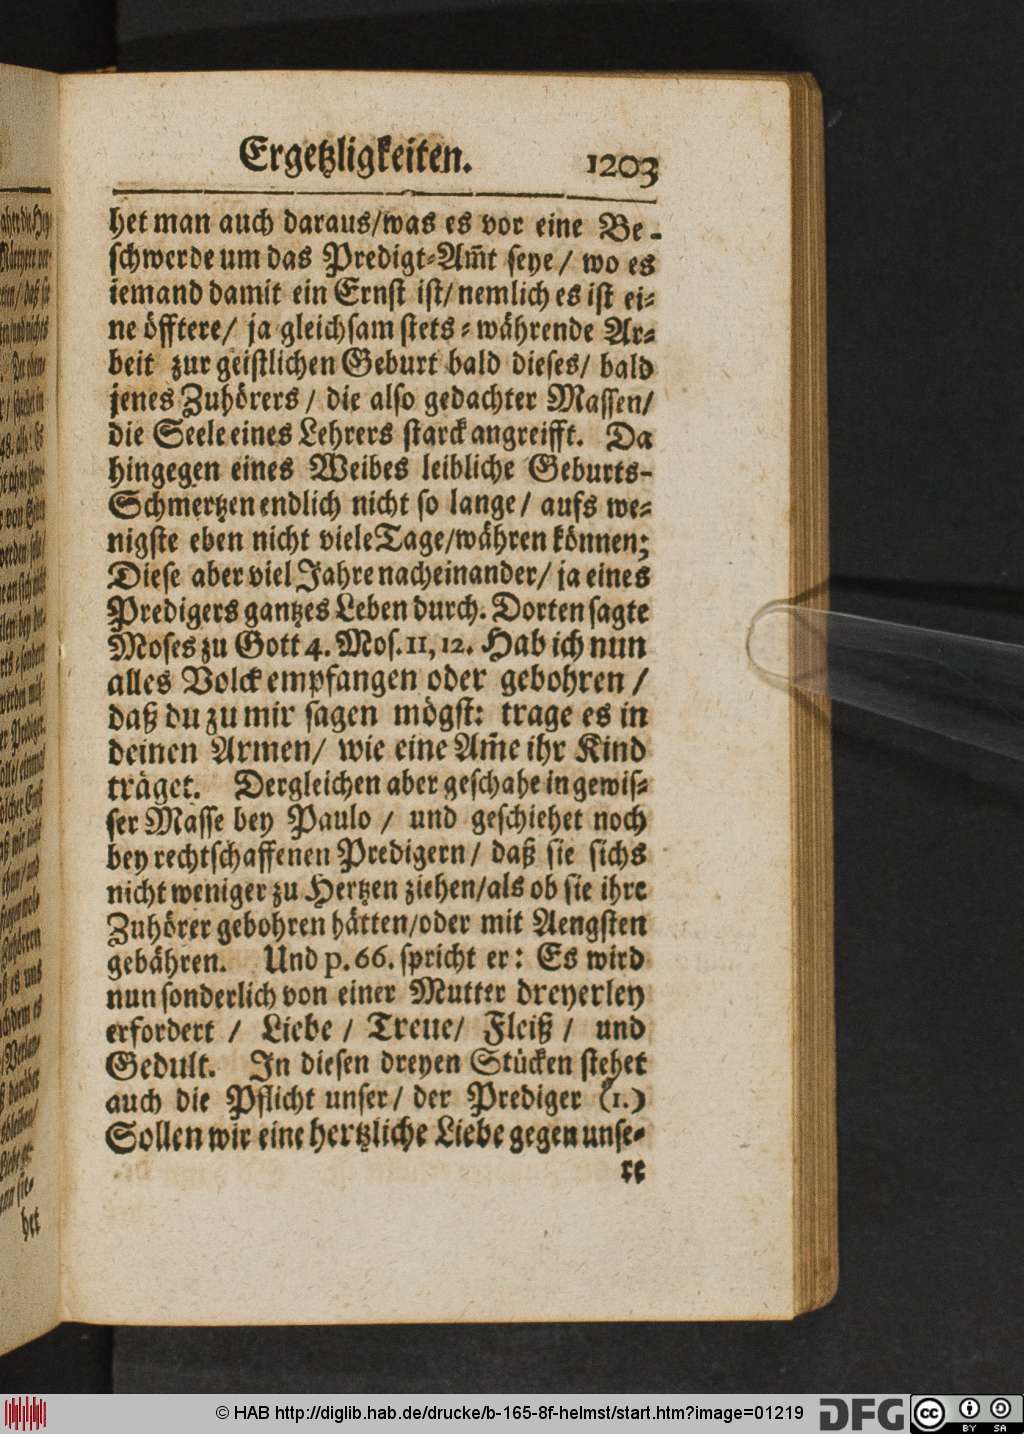 Ergetzligkeiten. 1203
het man auch daraus/was es vor eine Be-
schwerde um das Predigt-Am̄t seye / wo es
iemand damit ein Ernst ist/ nemlich es ist ei-
ne öfftere/ ja gleichsam stets-währende Ar-
beit zur geistlichen Geburt bald dieses/ bald
jenes Zuhörers / die also gedachter Massen/
die Seele eines Lehrers starck angreifft. Da
hingegen eines Weibes leibliche Geburts-
Schmertzen endlich nicht so lange / aufs we-
nigste eben nicht viele Tage/währen können;
Diese aber viel Jahre nacheinander/ ja eines
Predigers gantzes Leben durch. Dorten sagte
Moses zu Gott 4. Mos. 11, 12. Hab ich nun
alles Volck empfangen oder gebohren /
daß du zu mir sagen mögst: trage es in
deinen Armen/ wie eine Am̄e ihr Kind
träget. Dergleichen aber geschahe in gewis-
ser Masse bey Paulo / und geschiehet noch
bey rechtschaffenen Predigern / daß sie sichs
nicht weniger zu Hertzen ziehen/als ob sie ihre
Zuhörer gebohren hätten/oder mit Aengsten
gebähren. Und p. 66. spricht er: Es wird
nun sonderlich von einer Mutter dreyerley
erfordert / Liebe / Treue/ Fleiß / und
Gedult. In diesen dreyen Stücken stehet
auch die Pflicht unser / der Prediger (1.)
Sollen wir eine hertzliche Liebe gegen unse-
re
het
© HAB http://diglib.hab.de/drucke/b-165-8f-helmst/start.htm?image=01219
DFG
cc BY SA